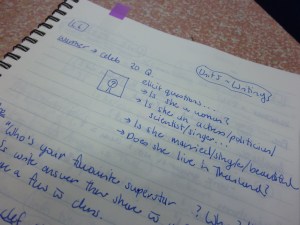 Dots - Writing
→ Celeb 20 Q
elicit questions...
→ Is she a woman?
→ Is she an actress/politician/
scientist/singer...
→ Is she married/single/beautiful
→ Does she live in Thailand?
Who's your favourite superstar ? Why?
write answer then share
a few in class.